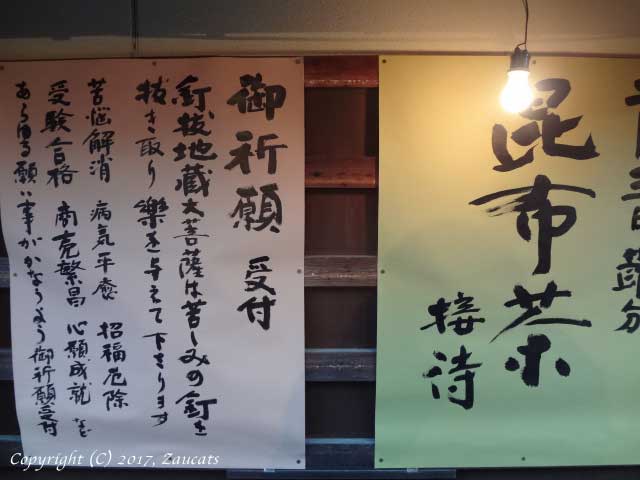 節分
昆布茶
接待
御祈願 受付
釘抜地蔵大菩薩は苦しみの釘を
抜き取り楽を与えて下さります
苦悩解消 病気平癒 招福厄除
受験合格 商売繁昌 心願成就 など
あらゆる願い事がかなうよう御祈願受付
Copyright (C) 2017, Zaucats